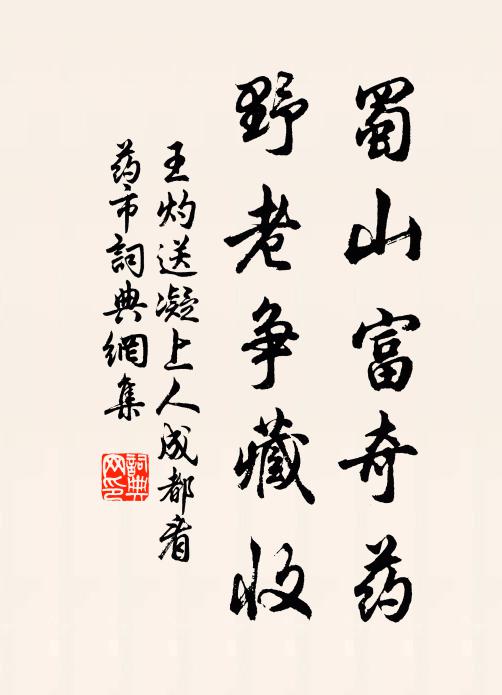 蜀山富奇药
野老争藏收
王灼送凝上人成都看
药市詞典網集
詞典
网印